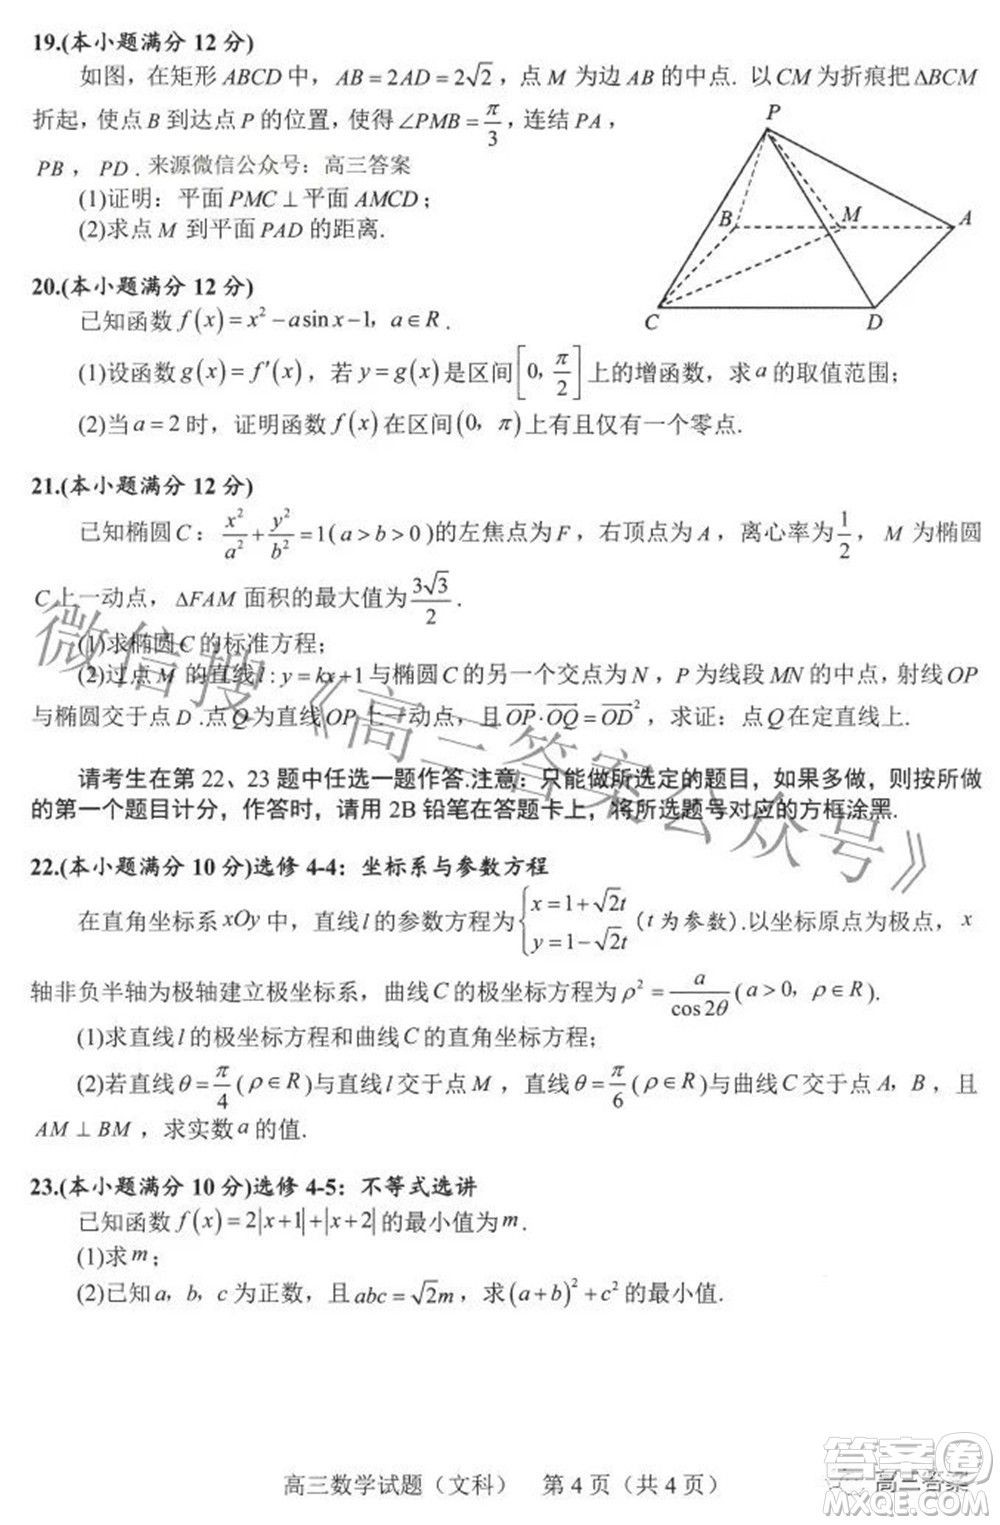 19.(本小题满分 12 分)
如图，在矩形 ABCD 中，AB=2AD=2√2，点 M 为边 AB 的中点. 以 CM 为折痕把 ΔBCM
折起，使点 B 到达点 P 的位置，使得 ∠PMB=π/3，连结 PA，
PB，PD. 来源微信公众号：高三答案
(1)证明：平面 PMC⊥平面 AMCD；
(2)求点 M 到平面 PAD 的距离.
P
B
M
A
C
D
20.(本小题满分 12 分)
已知函数 f(x)=x²-asinx-1，a∈R.
(1)设函数 g(x)=f′(x)，若 y=g(x) 是区间[0，π/2]上的增函数，求 a 的取值范围；
(2)当 a=2 时，证明函数 f(x) 在区间(0，π)上有且仅有一个零点.
21.(本小题满分 12 分)
已知椭圆 C：x²/a²+y²/b²=1(a>b>0)的左焦点为 F，右顶点为 A，离心率为1/2，M 为椭圆
C 上一动点，ΔFAM 面积的最大值为3√3/2.
(1)求椭圆 C 的标准方程；
(2)过点 M 的直线 l:y=kx+1 与椭圆 C 的另一个交点为 N，P 为线段 MN 的中点，射线 OP
与椭圆交于点 D.点 Q 为直线 OP 上一动点，且 \overrightarrow{OP}·\overrightarrow{OQ}=\overrightarrow{OD}²，求证：点 Q 在定直线上.
请考生在第 22、23 题中任选一题作答.注意：只能做所选定的题目，如果多做，则按所做
的第一个题目计分，作答时，请用 2B 铅笔在答题卡上，将所选题号对应的方框涂黑.
22.(本小题满分 10 分)选修 4-4：坐标系与参数方程
在直角坐标系 xOy 中，直线 l 的参数方程为{x=1+√2t
y=1-√2t (t 为参数).以坐标原点为极点，x
轴非负半轴为极轴建立极坐标系，曲线 C 的极坐标方程为 ρ²=a/cos2θ(a>0，ρ∈R).
(1)求直线 l 的极坐标方程和曲线 C 的直角坐标方程；
(2)若直线 θ=π/4(ρ∈R)与直线 l 交于点 M，直线 θ=π/6(ρ∈R)与曲线 C 交于点 A，B，且
AM⊥BM，求实数 a 的值.
23.(本小题满分 10 分)选修 4-5：不等式选讲
已知函数 f(x)=2|x+1|+|x+2| 的最小值为 m.
(1)求 m；
(2)已知 a，b，c 为正数，且 abc=√2m，求 (a+b)²+c² 的最小值.
高三数学试题（文科） 第 4 页（共 4 页）
微信搜《高三答案公众号》
高三答案
答案卷
MXQE.COM